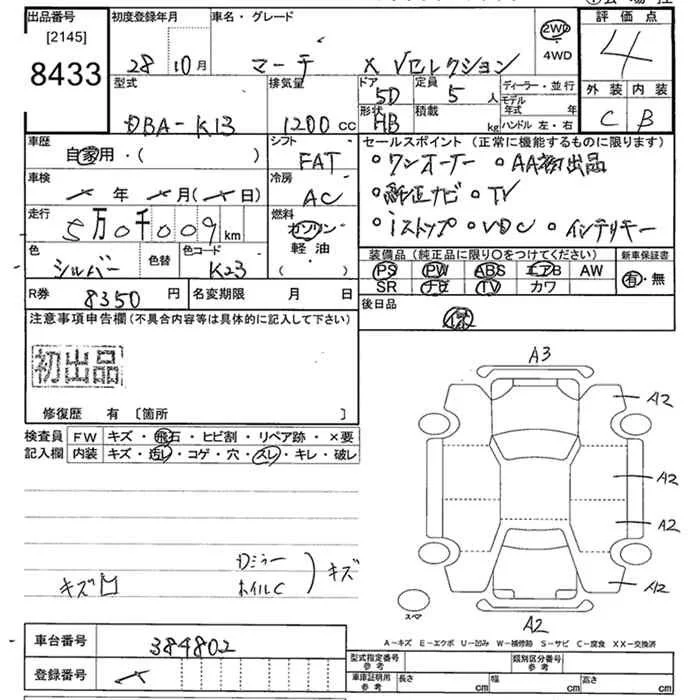 出品番号 初度登録年月 車名・グレード 評価点
[2145] 28年10月 マーチ X Vセレクション 2WD 4WD 4
8433
型式 排気量 ドア 5D 定員 5人 ディーラー・並行 外装 内装
DBA-K13 1200cc 形状 HB 積載 kg モデル年式 年 C B
ハンドル 左・右
車歴 自家用・( ) シフト FAT セールスポイント (正常に機能するものに限ります)
車検 年 月( 日) 冷房 AC ○ワンオーナー ○AA初出品
○純正ナビ ○TV
走行 5万0千009km 燃料 ガソリン 軽油・( ) ○iストップ ○VDC ○インテリキー
色 シルバー 色替 色コード K23 装備品 (純正品に限り○をつけてください) 新車保証書
PS PW ABS エアB AW 有・無
R券 8350円 名変期限 月 日 SR ナビ TV カワ
注意事項申告欄 (不具合内容等は具体的に記入して下さい) 後日品
初出品
A3
修復歴 有 〔箇所 〕 A2
検査員 FW キズ・飛石・ヒビ割・リペア跡・×要
記入欄 内装 キズ・汚レ・コゲ・穴・スレ・キレ・破レ
A2
A2
Dミラー
キズ凹 ホイルC ) キズ A2
スペア
A2
車台番号 384802 A-キズ E-エクボ U-凹み W-補修跡 S-サビ C-腐食 XX-交換済
型式指定番号参考 類別区分番号参考
登録番号 車庫証明用参考 長さ cm 幅 cm 高さ cm